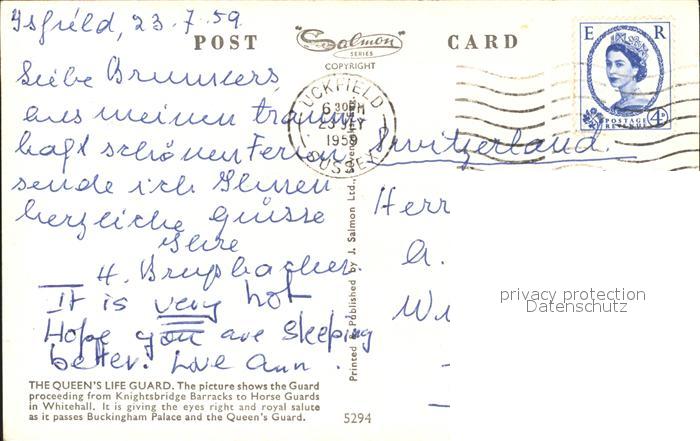 Isfield, 23.7.59
POST "Salmon" CARD
SERIES
COPYRIGHT
E R
POSTAGE
REVENUE
4D
UCKFIELD
6 30PM
23 JLY
1959
SUSSEX
Liebe Brunners,
aus meinen traum
haft schönen Ferien
sende ich Ihnen
herzliche grüsse
Ihre
H. Brupbacher
It is very hot
Hope you are sleeping
better. Love Ann.
Switzerland.
Herr
A.
Wi
privacy protection
Datenschutz
Printed & Published by J. Salmon Ltd.,
THE QUEEN'S LIFE GUARD. The picture shows the Guard
proceeding from Knightsbridge Barracks to Horse Guards
in Whitehall. It is giving the eyes right and royal salute
as it passes Buckingham Palace and the Queen's Guard.
5294